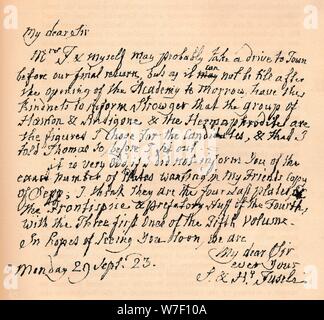 My dear Sir
Mrs F & myself may probably take a drive to Town
before our final return, but as it can may not be till after
the opening of the Academy to Morrow, have the
kindness to inform Strowger that the group of
Haemon & Antigone & the Hermaphrodite are
the figures I chose for the Candidates, & that I
told Thomas so before I set out.
it is very odd, I cannot inform You of the
exact number of Plates wanting in my Friend's Copy
of I think they are the four last plates of
the Frontispice & prefatory Stuff of the Fourth,
with the Three first Ones of the Fifth Volume.
In hopes of Seeing You Soon, we are
My dear Sir
ever Yours
Monday 29 Sept. 23.
alamy
W7F10A